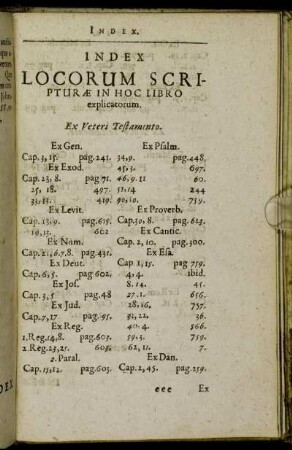 INDEX.
INDEX
LOCORUM SCRI-
PTURÆ IN HOC LIBRO
explicatorum.
Ex Veteri Testamento.
Ex Gen.
Cap. 3, 15. pag. 241.
Ex Exod.
Cap. 23, 8. pag 71.
25, 18. 497.
33, 13. 419.
Ex Levit.
Cap. 13, 9. pag. 615.
19, 13. 602
Ex Num.
Cap. 21, 6. 7. 8. pag. 431.
Ex Deut.
Cap. 6, 5. pag. 602.
Ex Jos.
Cap. 3, 5 pag. 48
Ex Jud.
Cap. 7, 17 pag. 95.
Ex Reg.
1. Reg. 14, 8. pag.
2. Reg. 23, 25. 603.
2. Paral.
Cap. 15, 12. pag. 603.
Ex Psalm.
34, 9. pag. 448,
45, 3. 697.
46, 9. 11 60.
51, 14 244
90, 10. 759.
Ex Proverb.
Cap. 30, 8. pag. 623.
Ex Cantic.
Cap. 2, 10. pag. 300.
Ex Esa.
Cap 1, 15. pag 759.
4. 4. ibid.
8. 14. 45.
27. 1. 656.
28. 16. 757.
31, 22. 36.
40. 4. 566.
59. 3. 759.
62, 11. 7.
Ex Dan.
Cap. 2, 45. pag. 259.
eee Ex